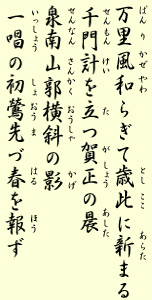 ばん り かぜ やわ とし ここ あらた
万里風和らぎて歳此に新まる
せんもん けい た がしょう あした
千門計を立つ賀正の晨
せんなん さんかく おうしゃ かげ
泉南山郭横斜の影
いっしょう しょおう ま はる ほう
一唱の初鶯先づ春を報ず